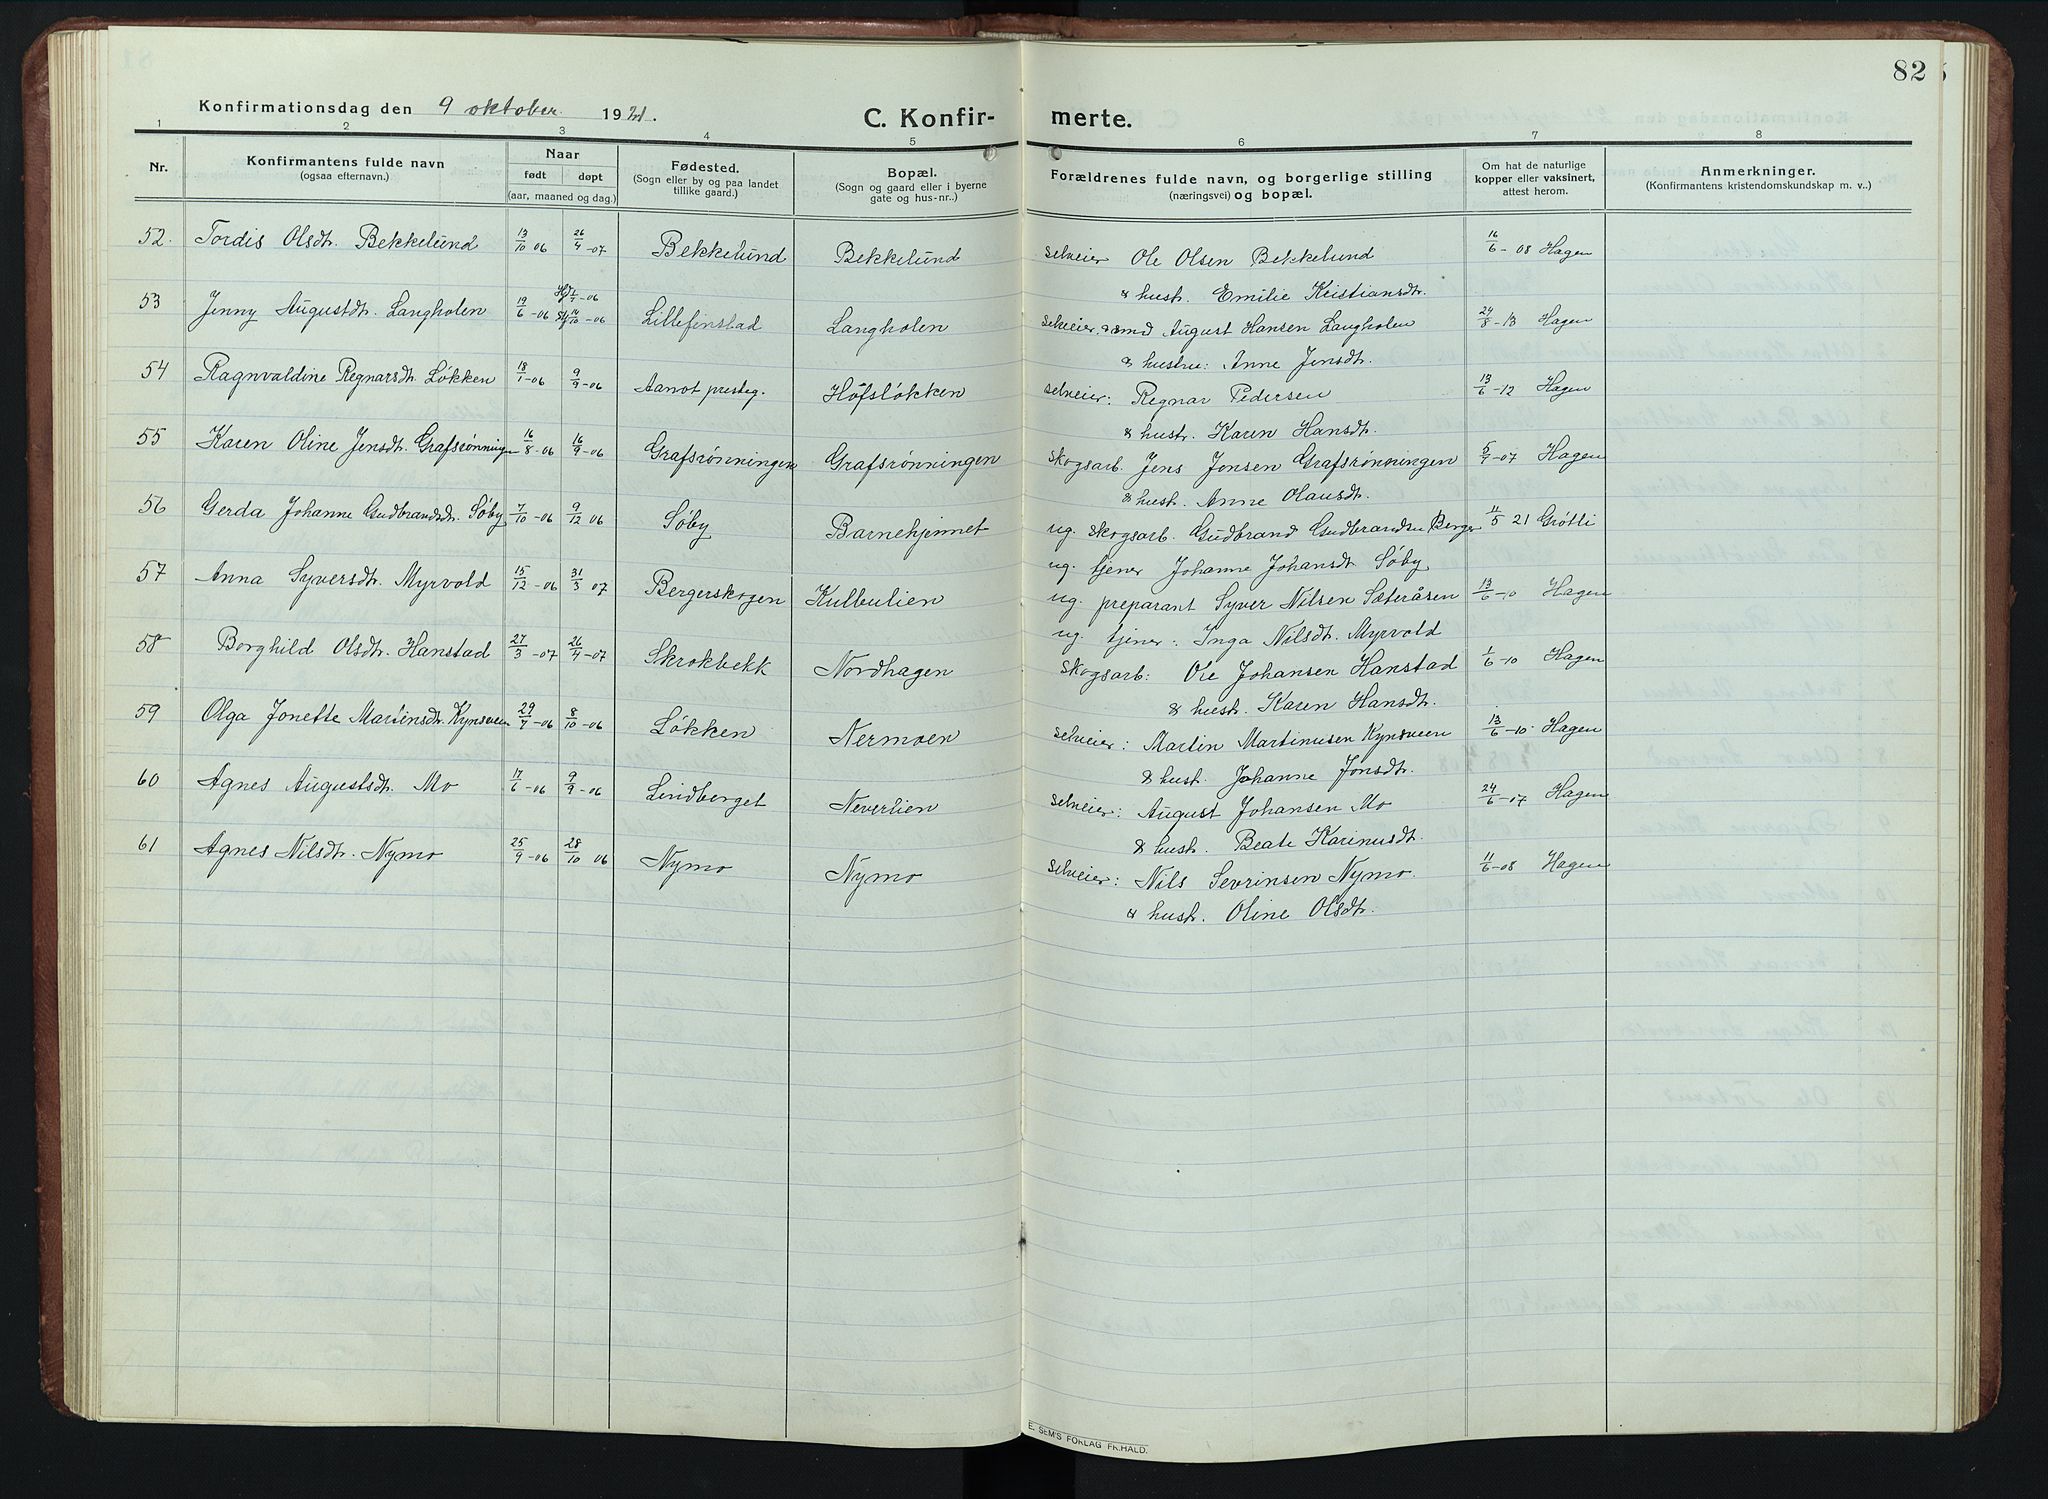 82
Konfirmationsdag den 9 oktober 1921.
C. Konfirmerte.
1 2 3 4 5 6 7 8
Nr.
Konfirmantens fulde navn
(ogsaa efternavn.)
Naar
født døpt
(aar, maaned og dag.)
Fødested.
(Sogn eller by og paa landet
tillike gaard.)
Bopæl.
(Sogn og gaard eller i byerne
gate og hus-nr..)
Forældrenes fulde navn, og borgerlige stilling
(næringsvei) og bopæl.
Om hat de naturlige
kopper eller vaksinert,
attest herom.
Anmerkninger.
(Konfirmantens kristendomskundskap m. v..)
52. Tordis Olsdtr. Bekkelund 13/10 06 26/4-07 Bekkelund Bekkelund selveier Ole Olsen Bekkelund 16/6-08 Hagen
& hust. Emilie Kristiansdtr.
53 Jenny Augustdtr. Langholen 19/6-06 /10-06 Lillefinstad Langholen selveier August Hansen Langholen 24/8-13 Hagen
& hustru: Anne Jensdtr.
54 Ragnvaldine Regnarsdtr Løkken 18/1-06 9/9-06 Aamot presteg. Hofsløkken selveier: Regnar Pedersen 13/6-12 Hagen
& hustr. Karen Hansdtr.
55 Karen Oline Jensdtr. Grafsrønningen 16/8-06 16/9-06 Grafsrønningen Grafsrønningen skogsarb. Jens Jonsen Grafsrønningen 5/7-07 Hagen
& hust. Anne Olausdtr.
56 Gerda Johanne Gudbrandsdtr. Søby 7/10-06 9/12 06 Søby Barnehjemmet ug. skogsarb. Gudbrand Gudbrandsen Berger 11/5 21 Grøtli
ug. tjener Johanne Johansdtr Søby
57 Anna Syversdtr. Myrvold 15/12-06 31/3 07 Bergerskogen Kulbulien ug. preparant Syver Nilsen Sæteråsen 13/6-10 Hagen
ug. tjener: Inga Nilsdtr. Myrvold
58 Borghild Olsdtr. Hanstad 27/3-07 26/4-07 Skrokbekk Nordhagen skogsarb: Ole Johansen Hanstad 1/6-10 Hagen
& hust. Karen Hansdtr.
59 Olga Jonette Martinsdtr. Kynsveen 29/7-06 8/10-06 Løkken Nermoen selveier: Martin Martinusen Kynsveen 13/6-10 Hagen
& hust. Johanne Jonsdtr.
60 Agnes Augustsdtr. Mo 17/6-06 9/9-06 Lindberget Neverlien selveier: August Johansen Mo 24/6-17 Hagen
& hust. Beate Karinusdtr.
61 Agnes Nilsdtr. Nymo 25/9-06 28/10 06 Nymo Nymo selveier: Nils Sevrinsen Nymo. 11/6-08 Hagen
& hust. Oline Olsdtr.
E. SEM'S FORLAG FR.HALD.